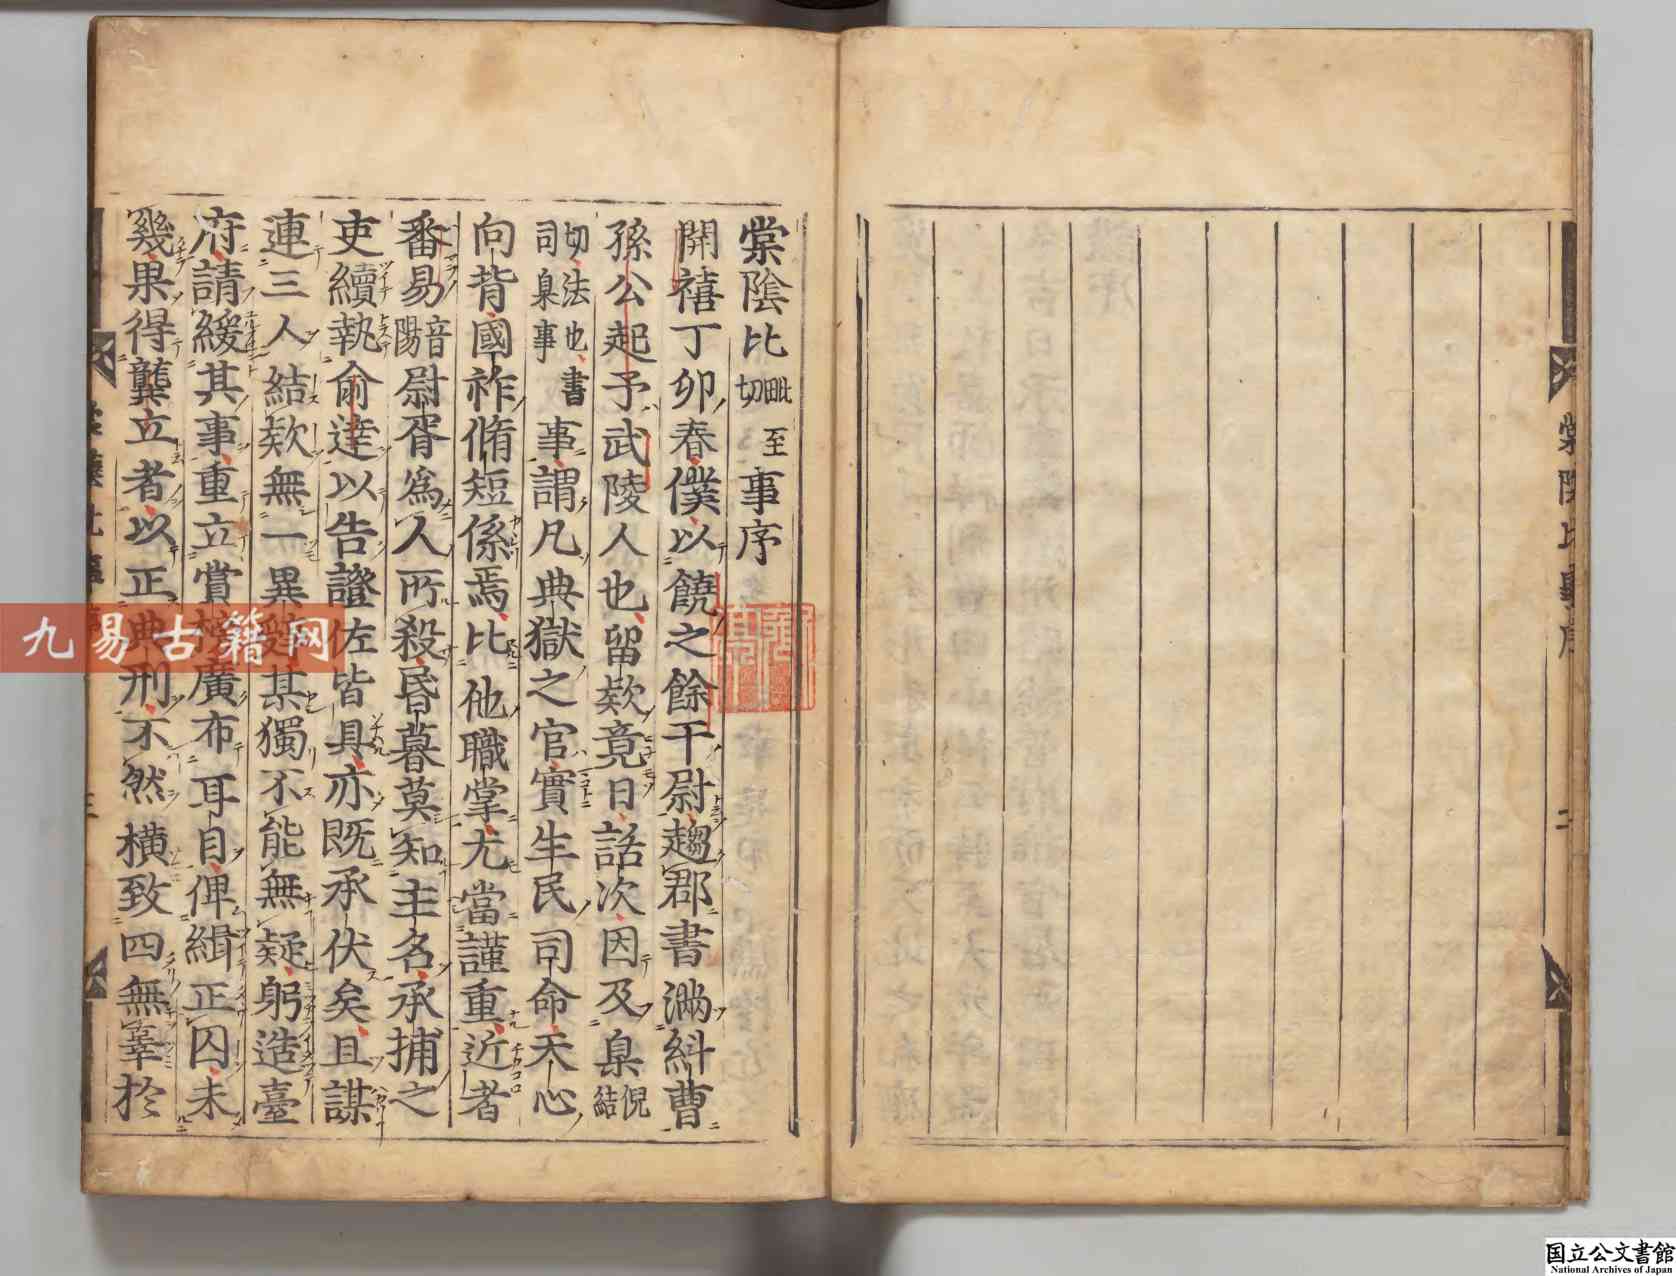 棠陰比毗至切事序
開禧丁卯春僕以饒之餘干尉趨郡書滿糾曹
孫公起予武陵人也留欵竟日話次因及臬倪結
切法也書司臬事事謂凡典獄之官實生民司命天心
向背國祚脩短係焉比他職掌尤當謹重近者
番易音陽尉胥爲人所殺昏暮莫知主名承捕之
吏續執俞達以告證佐皆具亦既承伏矣且謀
連三人結欵無一異辭某獨不能無疑躬造臺
府請緩其事重立賞榜廣布耳目俾緝正囚未
幾果得龔立者以正典刑不然橫致四無辜於
棠陰比事序
九易古籍网
国立公文書館
National Archives of Japan